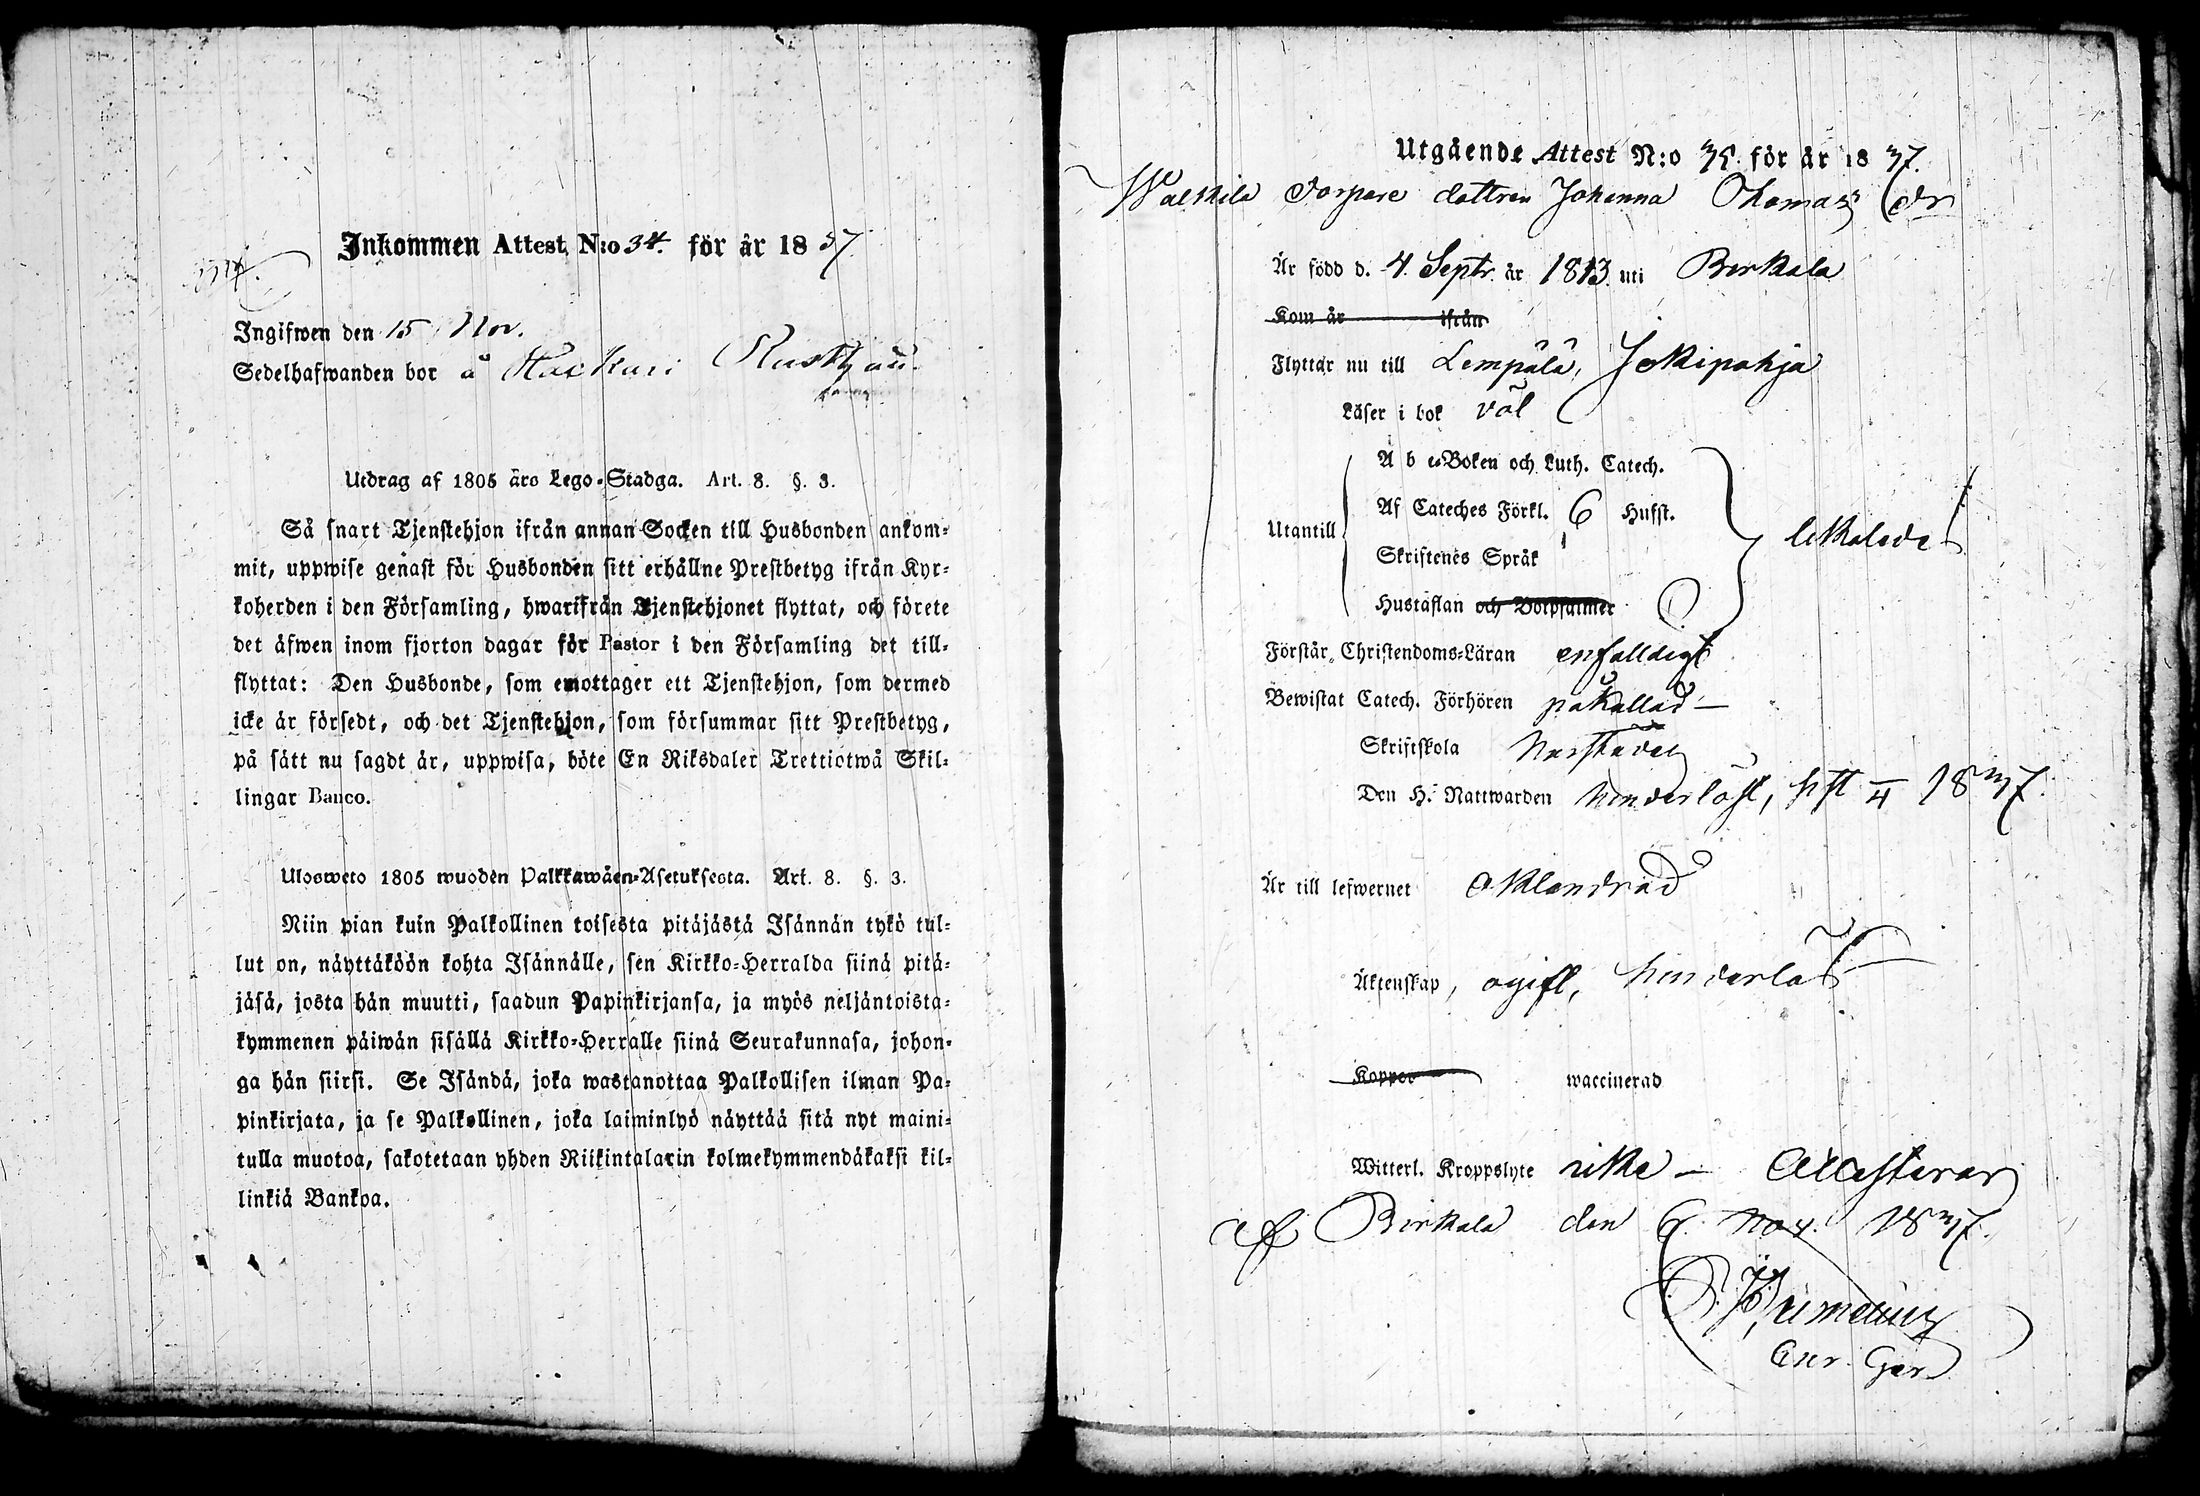 Inkommen Attest N:o 34. för år 1837.
Ingifwen den 15 Nov.
Sedelhafwanden bor å Kuckari Rusth
Utdrag af 1805 års Lego-Stadga. Art. 8. §. 3.
Så snart Tjenstehjon ifrån annan Socken till Husbonden ankom-
mit, uppwise genast för Husbonden sitt erhållne Prestbetyg ifrån Kyr-
koherden i den Församling, hwarifrån Tjenstehjonet flyttat, och förete
det äfwen inom fjorton dagar för Pastor i den Församling det till-
flyttat: Den Husbonde, som emottager ett Tjenstehjon, som dermed
icke är försedt, och det Tjenstehjon, som försummar sitt Prestbetyg,
på sätt nu sagdt är, uppwisa, böte En Riksdaler Trettiotwå Skil-
lingar Banco.
Ulosweto 1805 wuoden Palkkawäen-Asetuksesta. Art. 8. §. 3.
Niin pian kuin Palkollinen toisesta pitäjästä Isännän tykö tul-
lut on, näyttäköön kohta Isännälle, sen Kirkko-Herralda siinä pitä-
jäsä, josta hän muutti, saadun Papinkirjansa, ja myös neljäntoista-
kymmenen päiwän sisällä Kirkko-Herralle siinä Seurakunnasa, johon-
ga hän siirsi. Se Isändä, joka wastanottaa Palkollisen ilman Pa-
pinkirjata, ja se Palkollinen, joka laiminlyö näyttää sitä nyt maini-
tulla muotoa, sakotetaan yhden Riikintalarin kolmekymmendäkaksi kil-
linkiä Bankoa.
Utgående Attest N:o 35. för år 1837.
Walkila Torpare dottren Johanna Thomas dr
Är född d. 4. Septr. år 1813. uti Birkala
Kom år ifrån
Flyttar nu till Lempälä, Jokipohja
Läser i bok väl
Utantill
A b c-Boken och Luth. Catech.
Af Cateches Förkl. 6 Hufst.
Skriftenes Språk
Hustaflan och Botpsalmer
likaledes
Förstår Christendoms-Läran enfaldigt
Bewistat Catech. Förhören påkallad —
Skriftskola
Den H. Nattwarden hinderlöst, sist 1837.
Är till lefwernet oklandrad
Äktenskap, ogift, hinderlös
Koppor waccinerad
Witterl. Kroppslyte icke — Attesterar
af Birkala den 6. Nov. 1837.